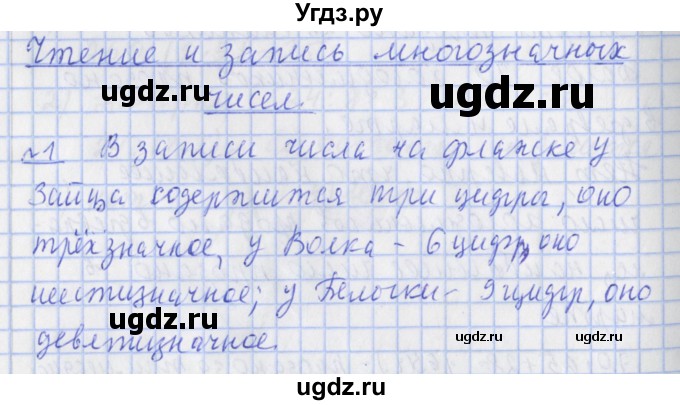 Угдз.ру
Чтение и запись многозначных
ugdz.ru ugdz.ru
чисел.
№1 В записи числа на флажке у
Зайца содержится три цифры, оно
трёхзначное, у Волка - 6 цифр, оно
шестизначное; у Белочки - 9 цифр, оно
ugdz.ru
девятизначное.
ugdz.ru ugdz.ru
ugdz.ru